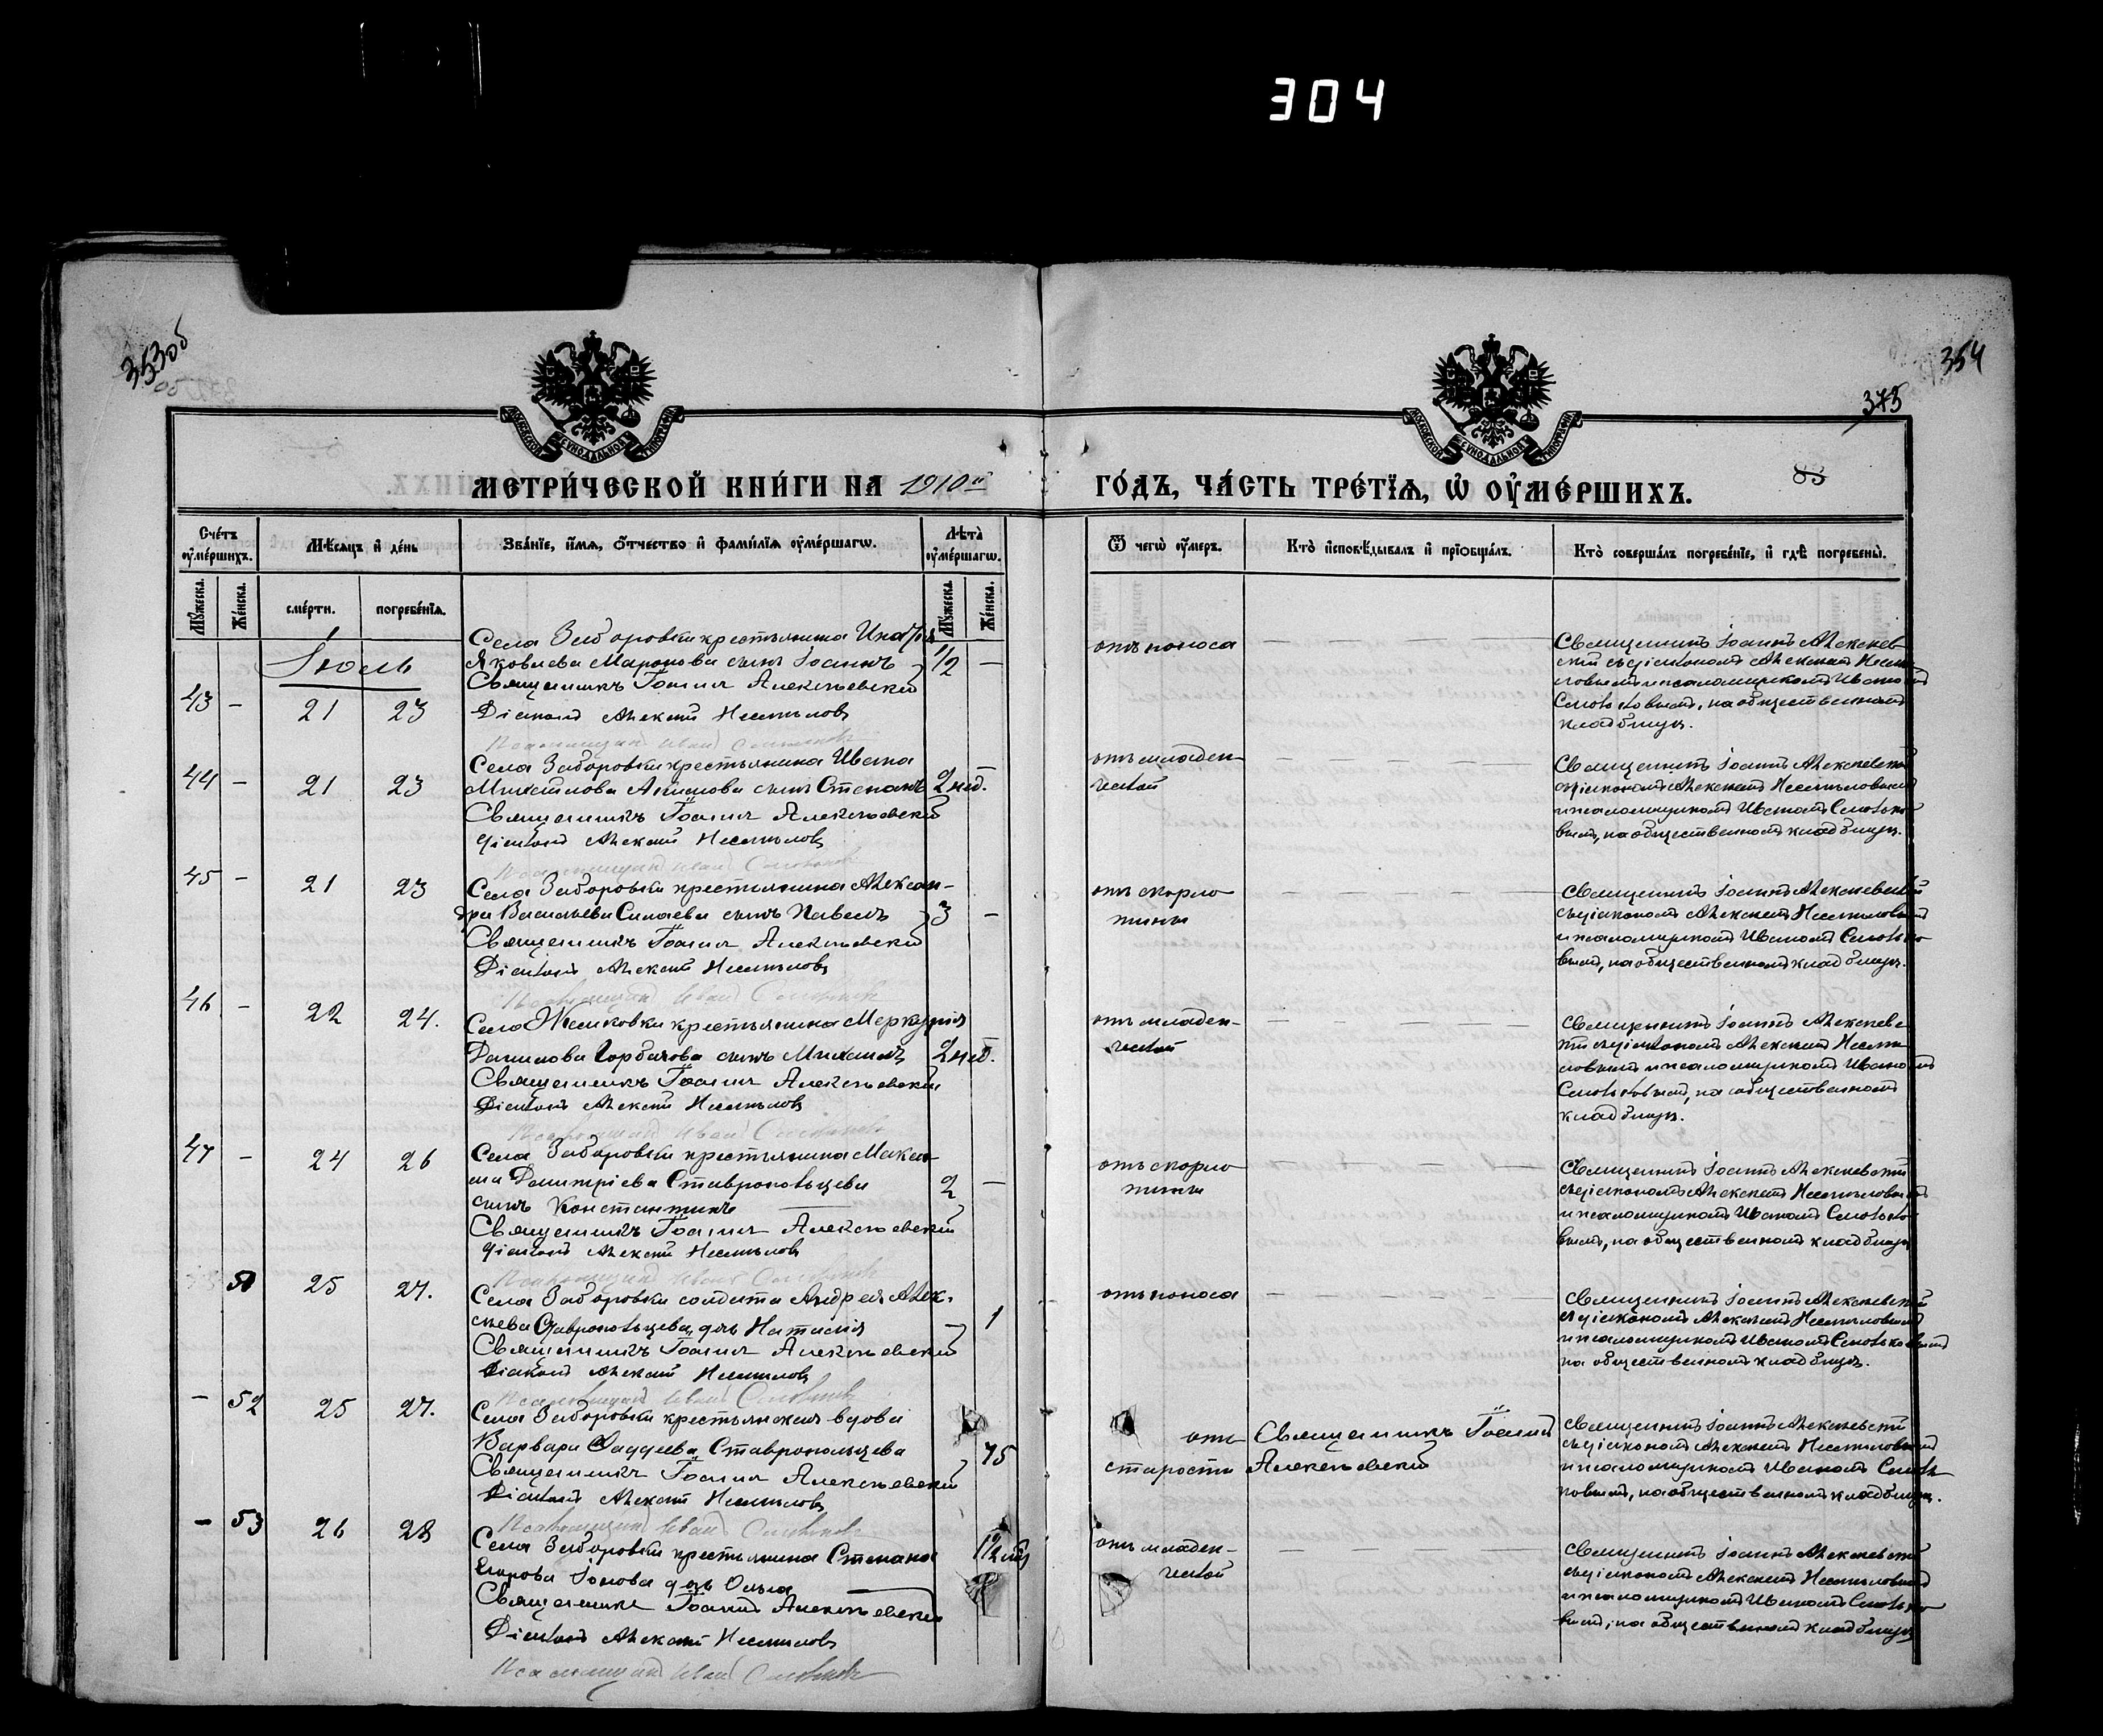 304
353об
об
354
373
83
МОСКОВСКОЙ СѴНОДАЛЬНОЙ ТИПОГРАФІИ
МОСКОВСКОЙ СѴНОДАЛЬНОЙ ТИПОГРАФІИ
МЕТРИ́ЧЕСКОЙ КНИ́ГИ НА 1910й ГО́ДЪ, ЧА́СТЬ ТРЕ́ТІѦ, Ѡ҆ ОУ҆МЕ́РШИХЪ.
Сче́тъ оу҆ме́ршихъ.
Мѣ́сѧцъ и҆ де́нь
Зва́нїе, и҆́мѧ, ѻ҆́тчество и҆ фами́лїѧ оу҆ме́ршагѡ.
Лѣта̀ оу҆ме́ршагѡ.
Ѿ чегѡ̀ оу҆́меръ.
Кто̀ и҆сповѣ́дывалъ и҆ прїѡбща́лъ.
Кто̀ соверша́лъ погребе́нїе, и҆ гдѣ̀ погребены̀.
Мꙋ́жеска.
Же́нска.
сме́рти.
погребе́нїѧ.
Мꙋ́жеска
Же́нска.
Іюль
43 – 21 23
Села Заборовки крестьянина Игнатія
Яковлева Маронова сынъ Іоаннъ 1/2 –
Священникъ Іоаннъ Алексѣевскій
Діаконъ Алексѣй Несмѣловъ
Псаломщикъ Иванъ
отъ поноса
Священникъ Іоаннъ Алексѣев-
скій съ діакономъ Алексѣемъ Несмѣ-
ловымъ и псаломщикомъ Иваномъ
на общественномъ
кладбищѣ.
44 – 21 23
Села Заборовки крестьянина Ивана
Михайлова Акимова сынъ Степанъ 2 нед.
Священникъ Іоаннъ Алексѣевскій
діаконъ Алексѣй Несмѣловъ
Псаломщикъ Иванъ
отъ младен-
ческой
Священникъ Іоаннъ Алексѣевскій
съ діакономъ Алексѣемъ Несмѣловымъ
и псаломщикомъ Иваномъ
на общественномъ кладбищѣ.
45 – 21 23
Села Заборовки крестьянина Алексан-
дра Васильева Силаева сынъ Павелъ 3 –
Священникъ Іоаннъ Алексѣевскій
Діаконъ Алексѣй Несмѣловъ
Псаломщикъ Иванъ
отъ скарла-
тины
Священникъ Іоаннъ Алексѣевскій
съ діакономъ Алексѣемъ Несмѣловымъ
и псаломщикомъ Иваномъ
на общественномъ кладбищѣ.
46 – 22 24.
Села Жемковки крестьянина Меркурія
Данилова Горбачова сынъ Михаилъ 2 нед.
Священникъ Іоаннъ Алексѣевскій
Діаконъ Алексѣй Несмѣловъ
Псаломщикъ Иванъ
отъ младен-
ческой
Священникъ Іоаннъ Алексѣевс-
кій съ діакономъ Алексѣемъ Несмѣ-
ловымъ и псаломщикомъ Иваномъ
на общественномъ
кладбищѣ.
47 – 24 26
Села Заборовки крестьянина Макси-
ма Димитріева Ставропольцева 2 –
сынъ Константинъ
Священникъ Іоаннъ Алексѣевскій
діаконъ Алексѣй Несмѣловъ
Псаломщикъ Иванъ
отъ скарла-
тины
Священникъ Іоаннъ Алексѣевскій
съ діакономъ Алексѣемъ Несмѣловымъ
и псаломщикомъ Иваномъ
на общественномъ кладбищѣ
51 25 27.
Села Заборовки солдата Андрея Алек-
сѣева Ставропольцева дочь Наталія – 1
Священникъ Іоаннъ Алексѣевскій
Діаконъ Алексѣй Несмѣловъ
Псаломщикъ Иванъ
отъ поноса
Священникъ Іоаннъ Алексѣевскій
съ діакономъ Алексѣемъ Несмѣловымъ
и псаломщикомъ Иваномъ
на общественномъ кладбищѣ.
– 52 25 27.
Села Заборовки крестьянская вдова
Варвара Фаддеева Ставропольцева 75
Священникъ Іоаннъ Алексѣевскій
Діаконъ Алексѣй Несмѣловъ
Псаломщикъ Иванъ
отъ
старости
Священникъ Іоаннъ
Алексѣевскій
Священникъ Іоаннъ Алексѣевскій
съ діакономъ Алексѣемъ Несмѣловымъ
и псаломщикомъ Иваномъ
на общественномъ кладбищѣ.
– 53 26 28
Села Заборовки крестьянина Степана 1 1/2 мѣ
Егорова Іонова дочь Ольга
Священникъ Іоаннъ Алексѣевскій
Діаконъ Алексѣй Несмѣловъ
Псаломщикъ Иванъ
отъ младен-
ческой
Священникъ Іоаннъ Алексѣевскій
съ діакономъ Алексѣемъ Несмѣловымъ
и псаломщикомъ Иваномъ
на общественномъ кладбищѣ